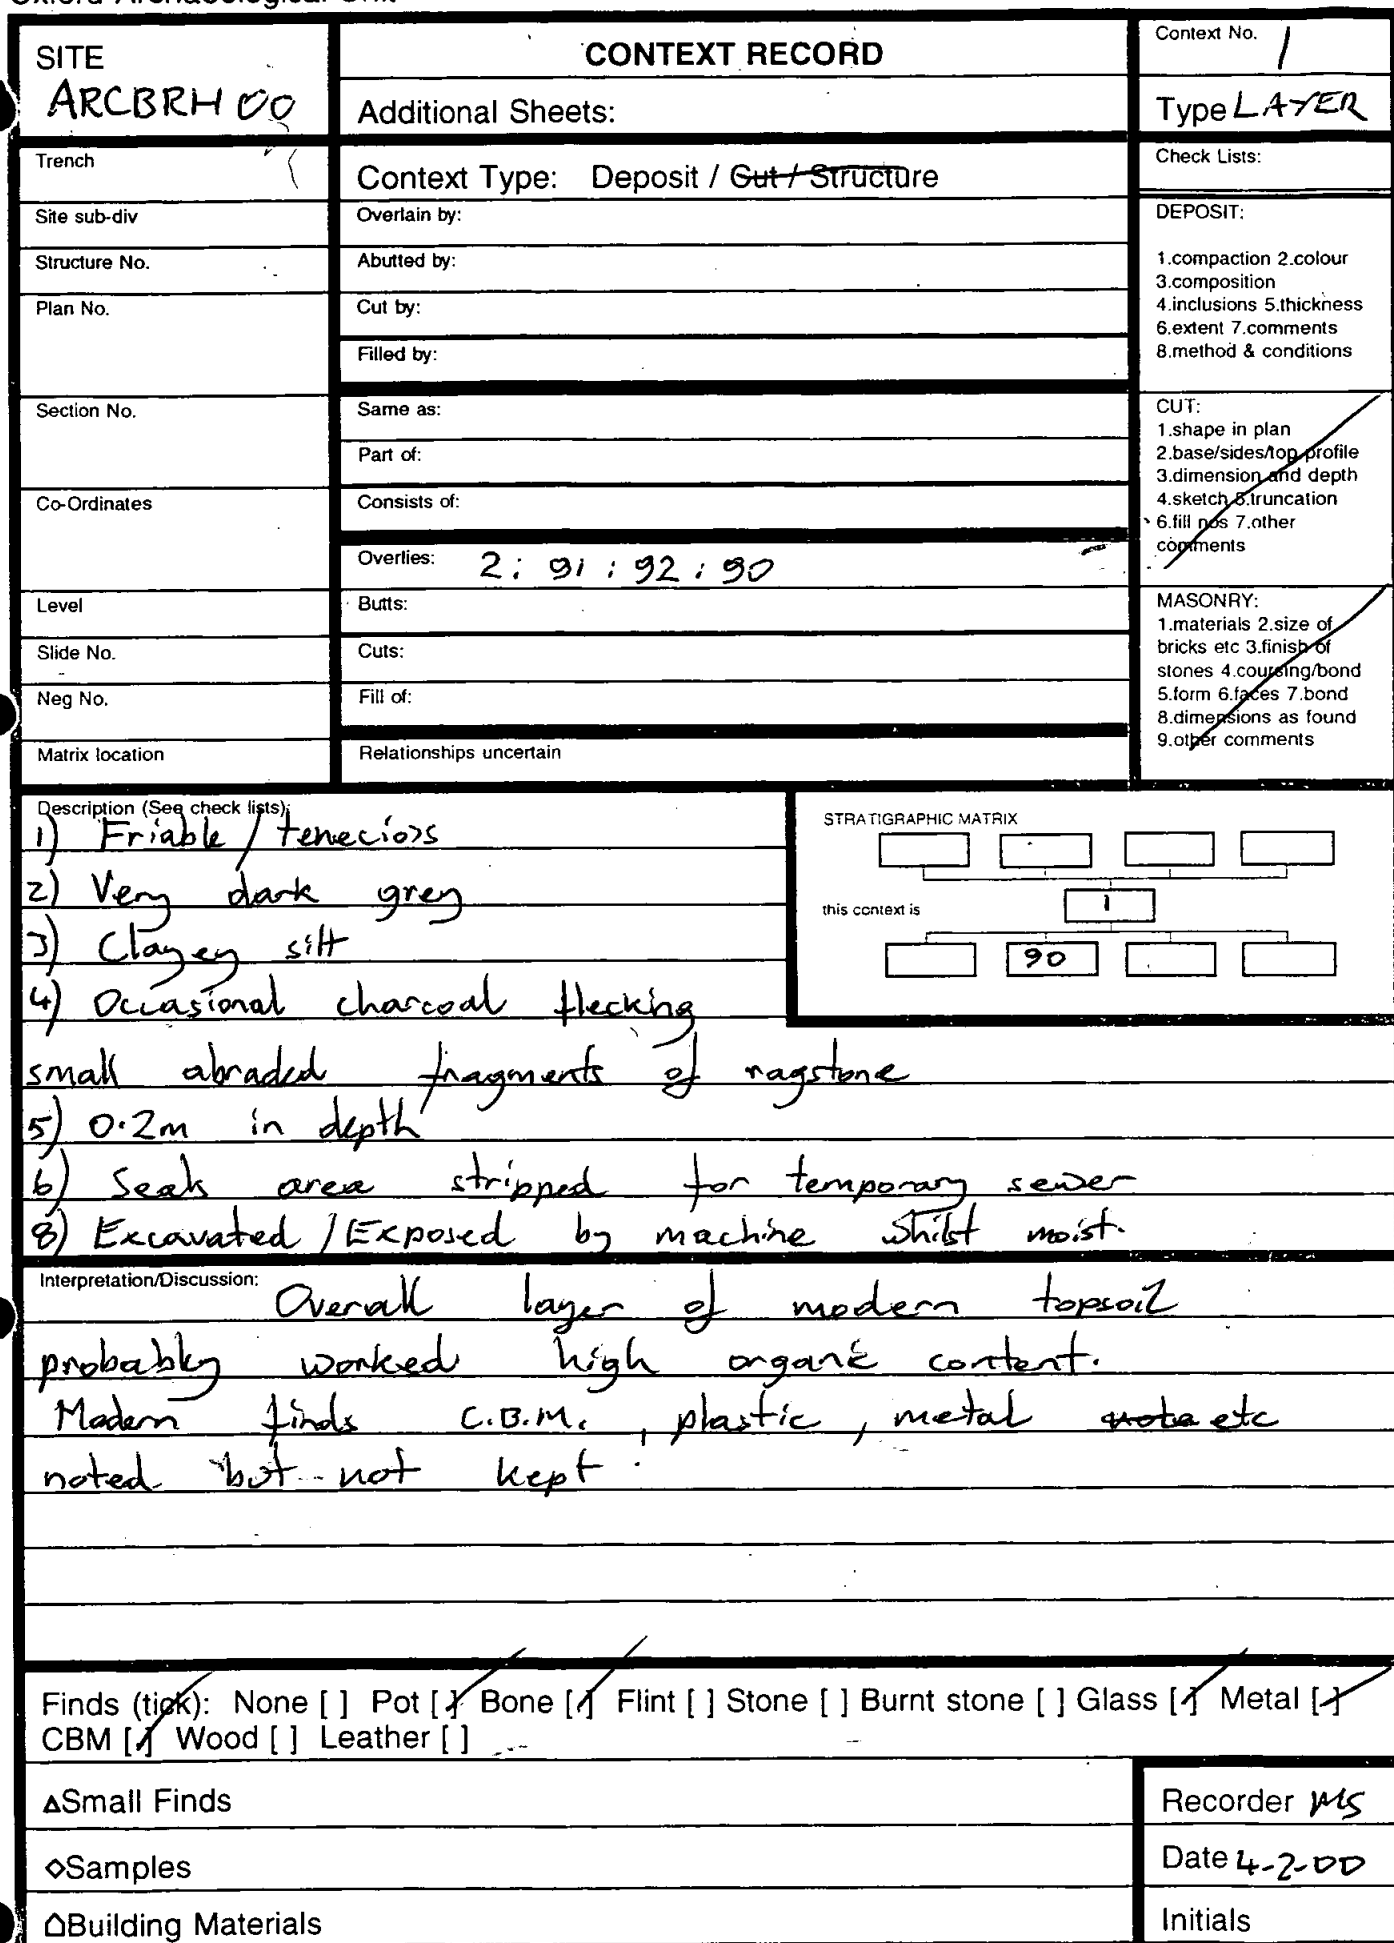 Oxford Archaeological Unit
SITE
ARCBRH 00
CONTEXT RECORD
Additional Sheets:
Context No. 1
Type LAYER
Trench
Site sub-div
Structure No.
Plan No.
Section No.
Co-Ordinates
Level
Slide No.
Neg No.
Matrix location
Context Type: Deposit / Cut / Structure
Overlain by:
Abutted by:
Cut by:
Filled by:
Same as:
Part of:
Consists of:
Overlies: 2 : 91 : 92 : 90
Butts:
Cuts:
Fill of:
Relationships uncertain
Check Lists:
DEPOSIT:
1.compaction 2.colour
3.composition
4.inclusions 5.thickness
6.extent 7.comments
8.method & conditions
CUT:
1.shape in plan
2.base/sides/top profile
3.dimension and depth
4.sketch 5.truncation
6.fill nos 7.other
comments
MASONRY:
1.materials 2.size of
bricks etc 3.finish of
stones 4.coursing/bond
5.form 6.faces 7.bond
8.dimensions as found
9.other comments
Description (See check lists):
1) Friable / teneciors
2) Very dark grey
3) Clayey silt
4) Occasional charcoal flecking
small abraded fragments of ragstone
5) 0.2m in depth
6) Seals area stripped for temporary sewer
8) Excavated / Exposed by machine whilst moist.
STRATIGRAPHIC MATRIX
this context is
1
90
Interpretation/Discussion: Overall layer of modern topsoil
probably worked high organic content.
Modern finds C.B.M. , plastic , metal note etc
noted but not kept.
Finds (tick): None [ ] Pot [/] Bone [/] Flint [ ] Stone [ ] Burnt stone [ ] Glass [/] Metal [/]
CBM [/] Wood [ ] Leather [ ]
△Small Finds
◇Samples
Building Materials
Recorder MS
Date 4-2-00
Initials